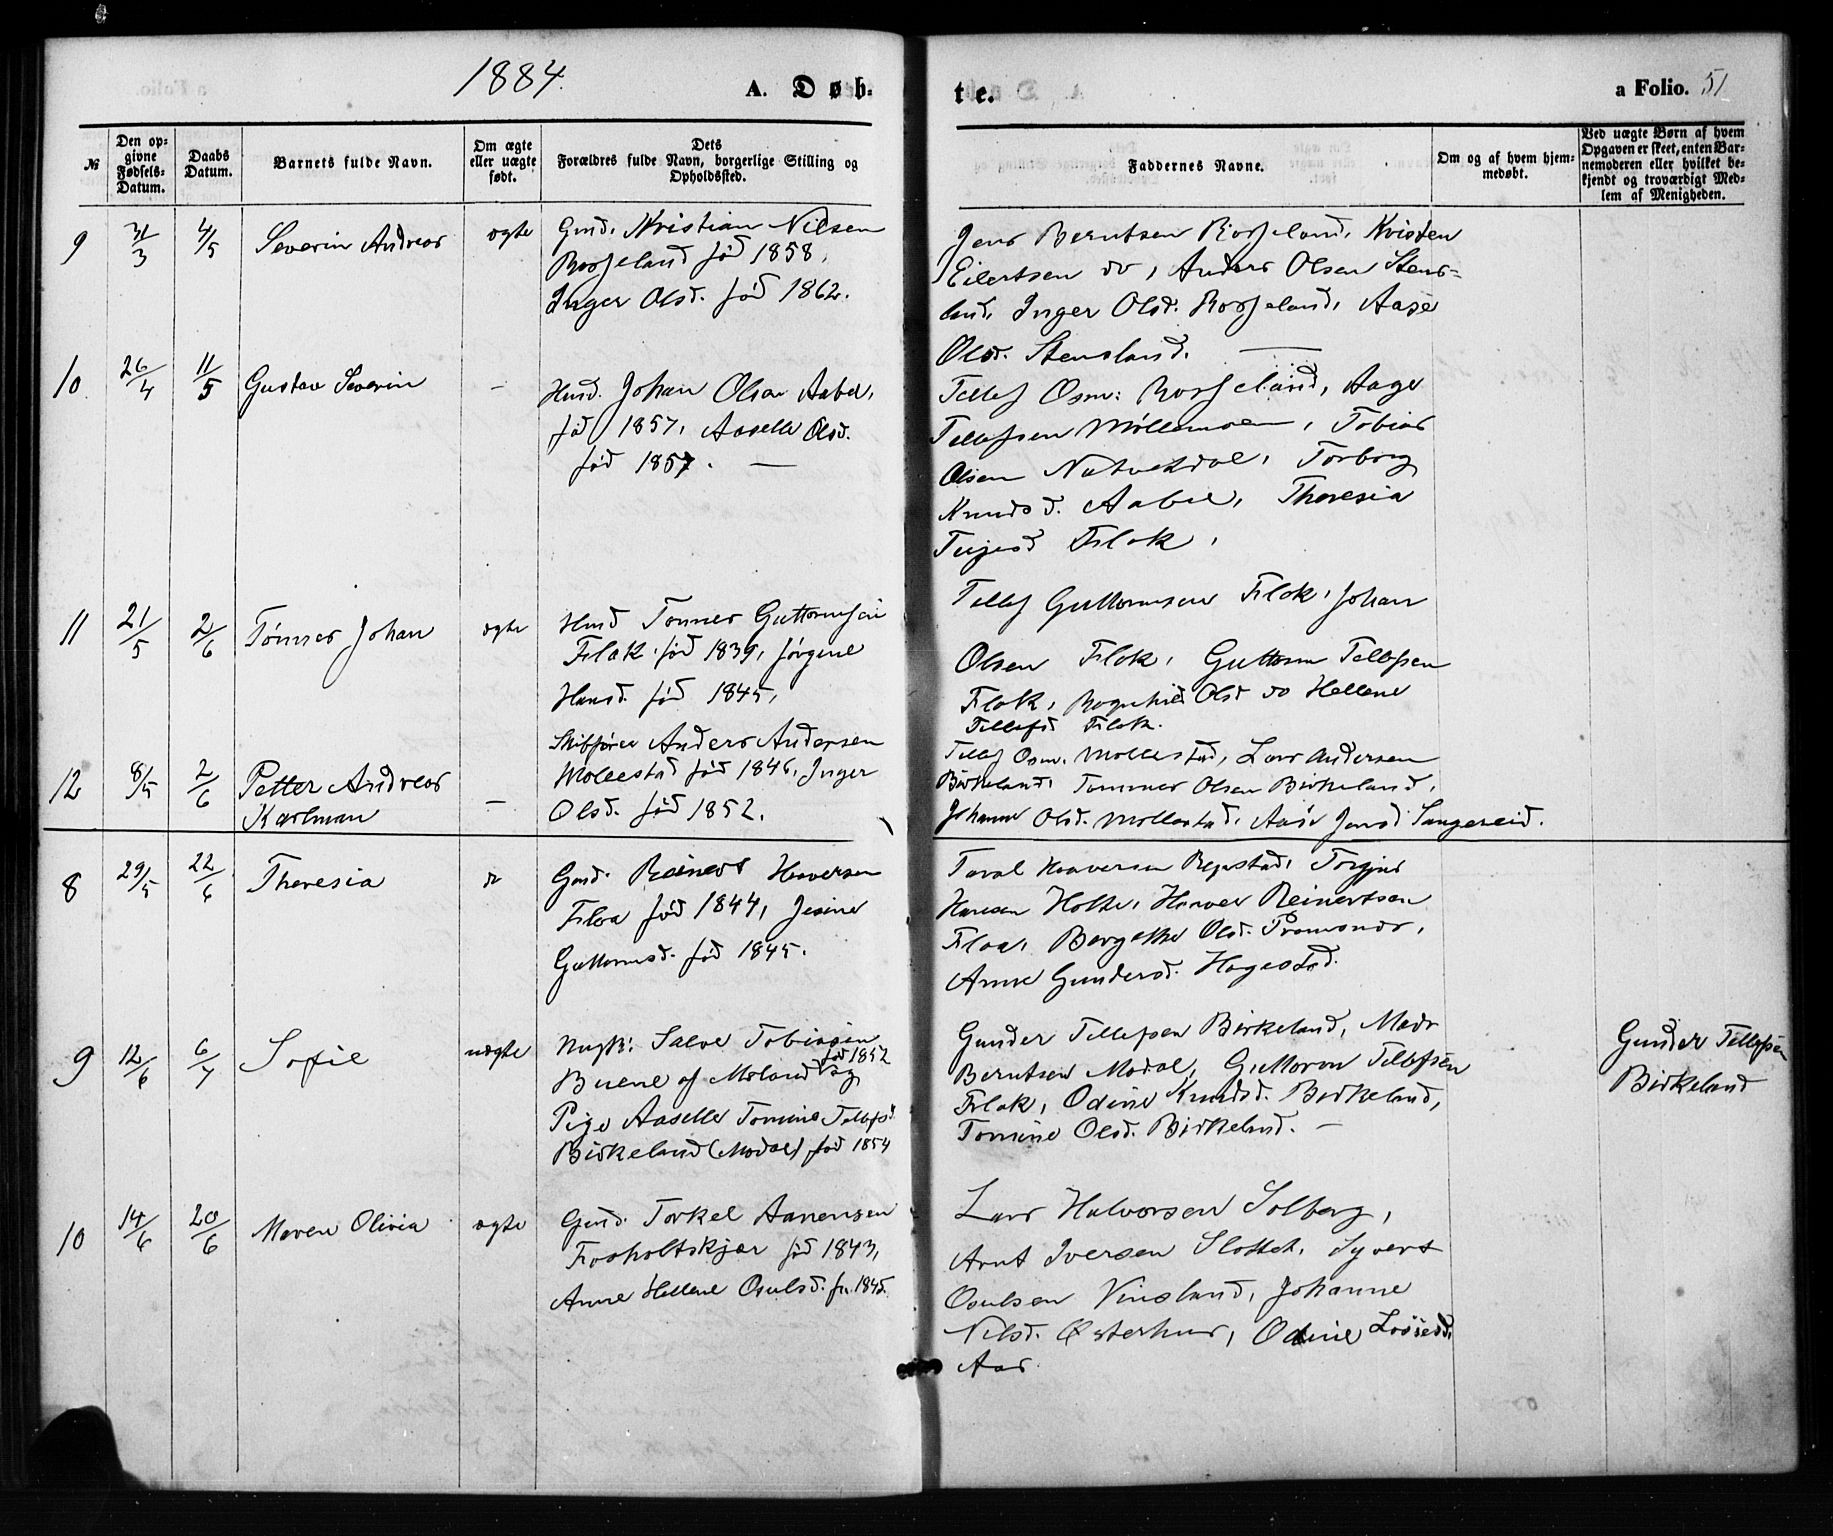 1884.
A. Døb-
te.
a Folio. 51
№
Den op-
givne
Fødsels-
Datum.
Daabs
Datum.
Barnets fulde Navn.
Om ægte
eller uægte
født.
Dets
Forældres fulde Navn, borgerlige Stilling og
Opholdssted.
Faddernes Navne.
Om og af hvem hjem-
medøbt.
Ved uægte Børn af hvem
Opgaven er skeet, enten Bar-
nemoderen eller hvilket be-
kjendt og troværdigt Med-
lem af Menigheden.
9 31/3 4/5 Severin Andreas ægte
Gmd. Kristian Nilsen
Rosseland fød 1858,
Inger Olsd. fød 1862.
Jens Berntsen Rosseland, Kristen
Eilertsen do, Anders Olsen Stens-
land, Inger Olsd. Rosseland, Aase
Olsd. Stensland. —
10. 26/4 11/5 Gustav Severin —
Husd. Johan Olsen Aabel,
fød 1857, Aaselle Olsd.
fød 1857. —
Tellef Osm. Rosseland, Aage
Tellefsen Møllemoen, Tobias
Olsen Natvedtdal, Torborg
Knudsd. Aabel, Theresia
Flak,
11 21/5 2/6 Tønnes Johan ægte
Husd Tønnes Guttormsen
Flak fød 1839, Jørgine
Hansd. fød 1845,
Tellef Guttormsen Flak, Johan
Olsen Flak, Guttorm Tellefsen
Flak, Ragnhild Olsd do Hellene
Tellefsd Flak.
12 8/5 2/6 Petter Andreas
Karlman —
Skibsfører Anders Andersen
Mollestad fød 1846, Inger
Olsd. fød 1852.
Tellef Osm. Mollestad, Lars Andersen
Birkeland, Tommas Olsen Birkeland,
Johanne Olsd. Mollestad, Aase Jensd Saugereid.
8 29/5 22/6 Theresia do
Gmd. Reinert Haaversen
Floa fød 1844, Jesine
Guttormsd. fød 1845.
Taral Haaversen Repstad, Torjus
Hansen Holte, Haaver Reinertsen
Floa, Bergitte Olsd. Tromsnes,
Anne Gundersd. Hagestad.
9 12/6 6/7 Sofie uægte
Ungk. Salve Tobiasen
Buene af Moland fød 1852 og
Pige Aaselle Tomine Tellefsd.
Birkeland (Modal) fød 1854
Gunder Tellefsen Birkeland, Mads
Berntsen Modal, Guttorm Tellefsen
Flak, Odine Knudsd. Birkeland,
Tomine Olsd. Birkeland. —
Gunder Tellefsen
Birkeland
10 14/6 20/6 Maren Olivia ægte
Gmd. Torkel Aanensen
Frosholtskjær fød 1843,
Anne Hellene Osulsd. f. 1845.
Lars Halvorsen Solberg,
Arnt Iversen Slottet, Syvert
Osulsen Vinsland, Johanne
Nilsd. Østerhus, Odine Larsd.
Aas.